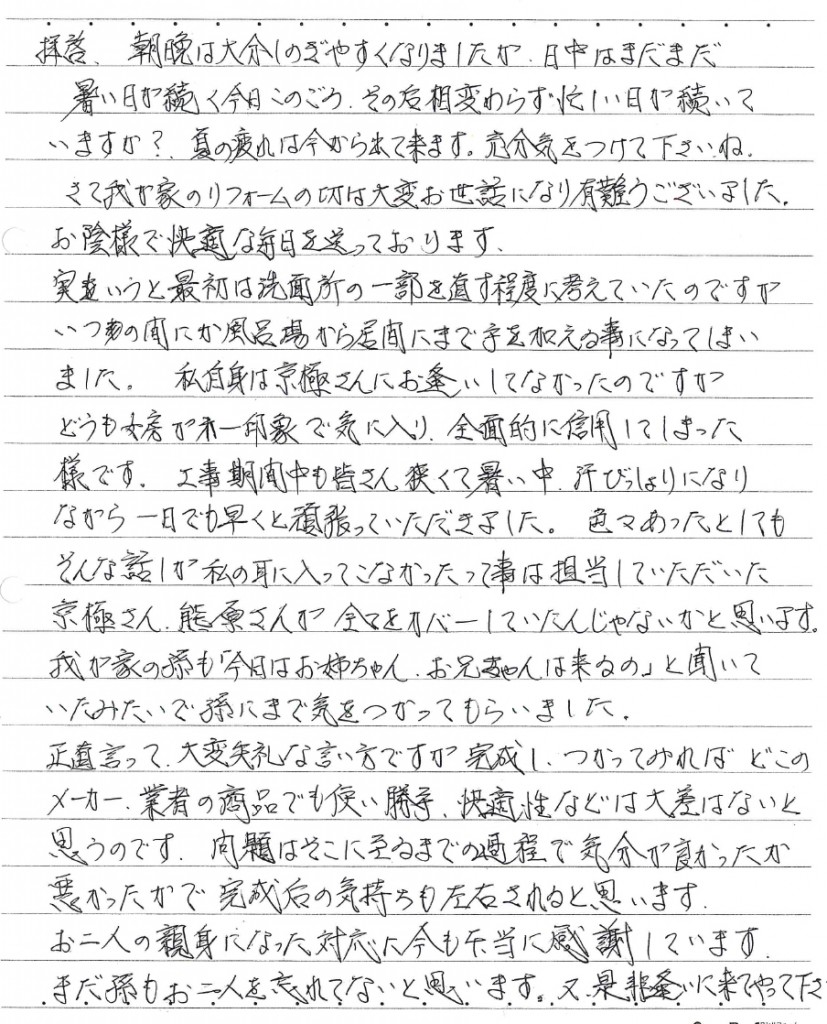 拝啓、朝晩は大分しのぎやすくなりましたが、日中はまだまだ
暑い日が続く今日このごろ、その后相変わらず忙しい日が続いて
いますか？、夏の疲れは今から出て来ます。充分気をつけて下さいね、
さて我が家のリフォームの切は大変お世話になり有難うございました。
お陰様で快適な毎日を送っております、
実をいうと最初は洗面所の一部を直す程度に考えていたのですが
いつの間にか風呂場から居間にまで手を加える事になってしまい
ました。 私自身は京極さんにお逢いしてなかったのですが
どうも女房が才一印象で気に入り、全面的に信用してしまった
様です。 工事期間中も皆さん狭くて暑い中、汗びっしょりになり
ながら一日でも早くと頑張っていただきました。 色々あったとしても
そんな話しが私の耳に入ってこなかったって事は担当していただいた
京極さん、熊原さんが全てをカバーしていたんじゃないかと思います。
我が家の孫も「今日はお姉ちゃん、お兄ちゃんは来るの」と聞いて
いたみたいで孫にまで気をつかってもらいました。
正直言って、大変失礼な言い方ですが完成し、つかってみれば どこの
メーカー、業者の商品でも使い勝手、快適性などは大差はないと
思うのです、 問題はそこに至るまでの過程で気分が良かったか
悪かったかで完成后の気持ちも左右されると思います、
お二人の親身になった対応に今も本当に感謝しています、
まだ孫もお二人を忘れてないと思います。又、是非逢いに来てやって下さ